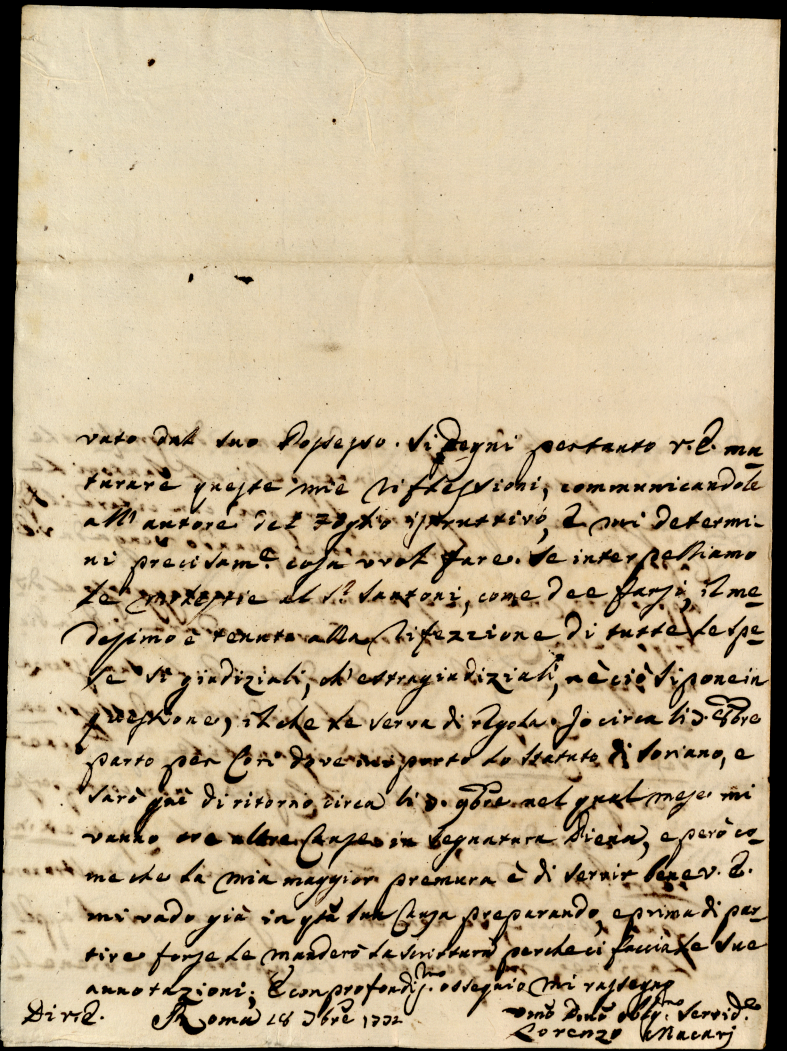 vato dal suo Possesso. Si degni pertanto V. E. ma-
turare queste mie riflessioni, communicandole
all'autore del Foglio istruttivo, e mi determi-
ni precisam.e cosa vuol fare. Se interpelliamo
le proteste al S.r Santoni, come dee farsi, il me-
desimo è tenuto alla rifezzione di tutte le spe-
se sì giudiziali, ch'estragiudiziali, nè ciò si pone in
questione, il che le serva di regola. Io circa li 8bre
parto per Cori dove porto lo Statuto di Soriano, e
sarò quì di ritorno circa li 9bre nel qual mese mi
vanno tre altre Cause in Segnatura Piena, e però co-
me che la mia maggior premura è di servir bene V. E.
mi vado già in qta sua Causa preparando, e prima di par-
tire forse le manderò la scrittura perche ci faccia le sue
annotazioni; E con profondiss.mo ossequio mi rassegno
Di V. E. Roma 28 7bre 1732
Umo Dmo obbl.mo Servid.e
Lorenzo Macarj